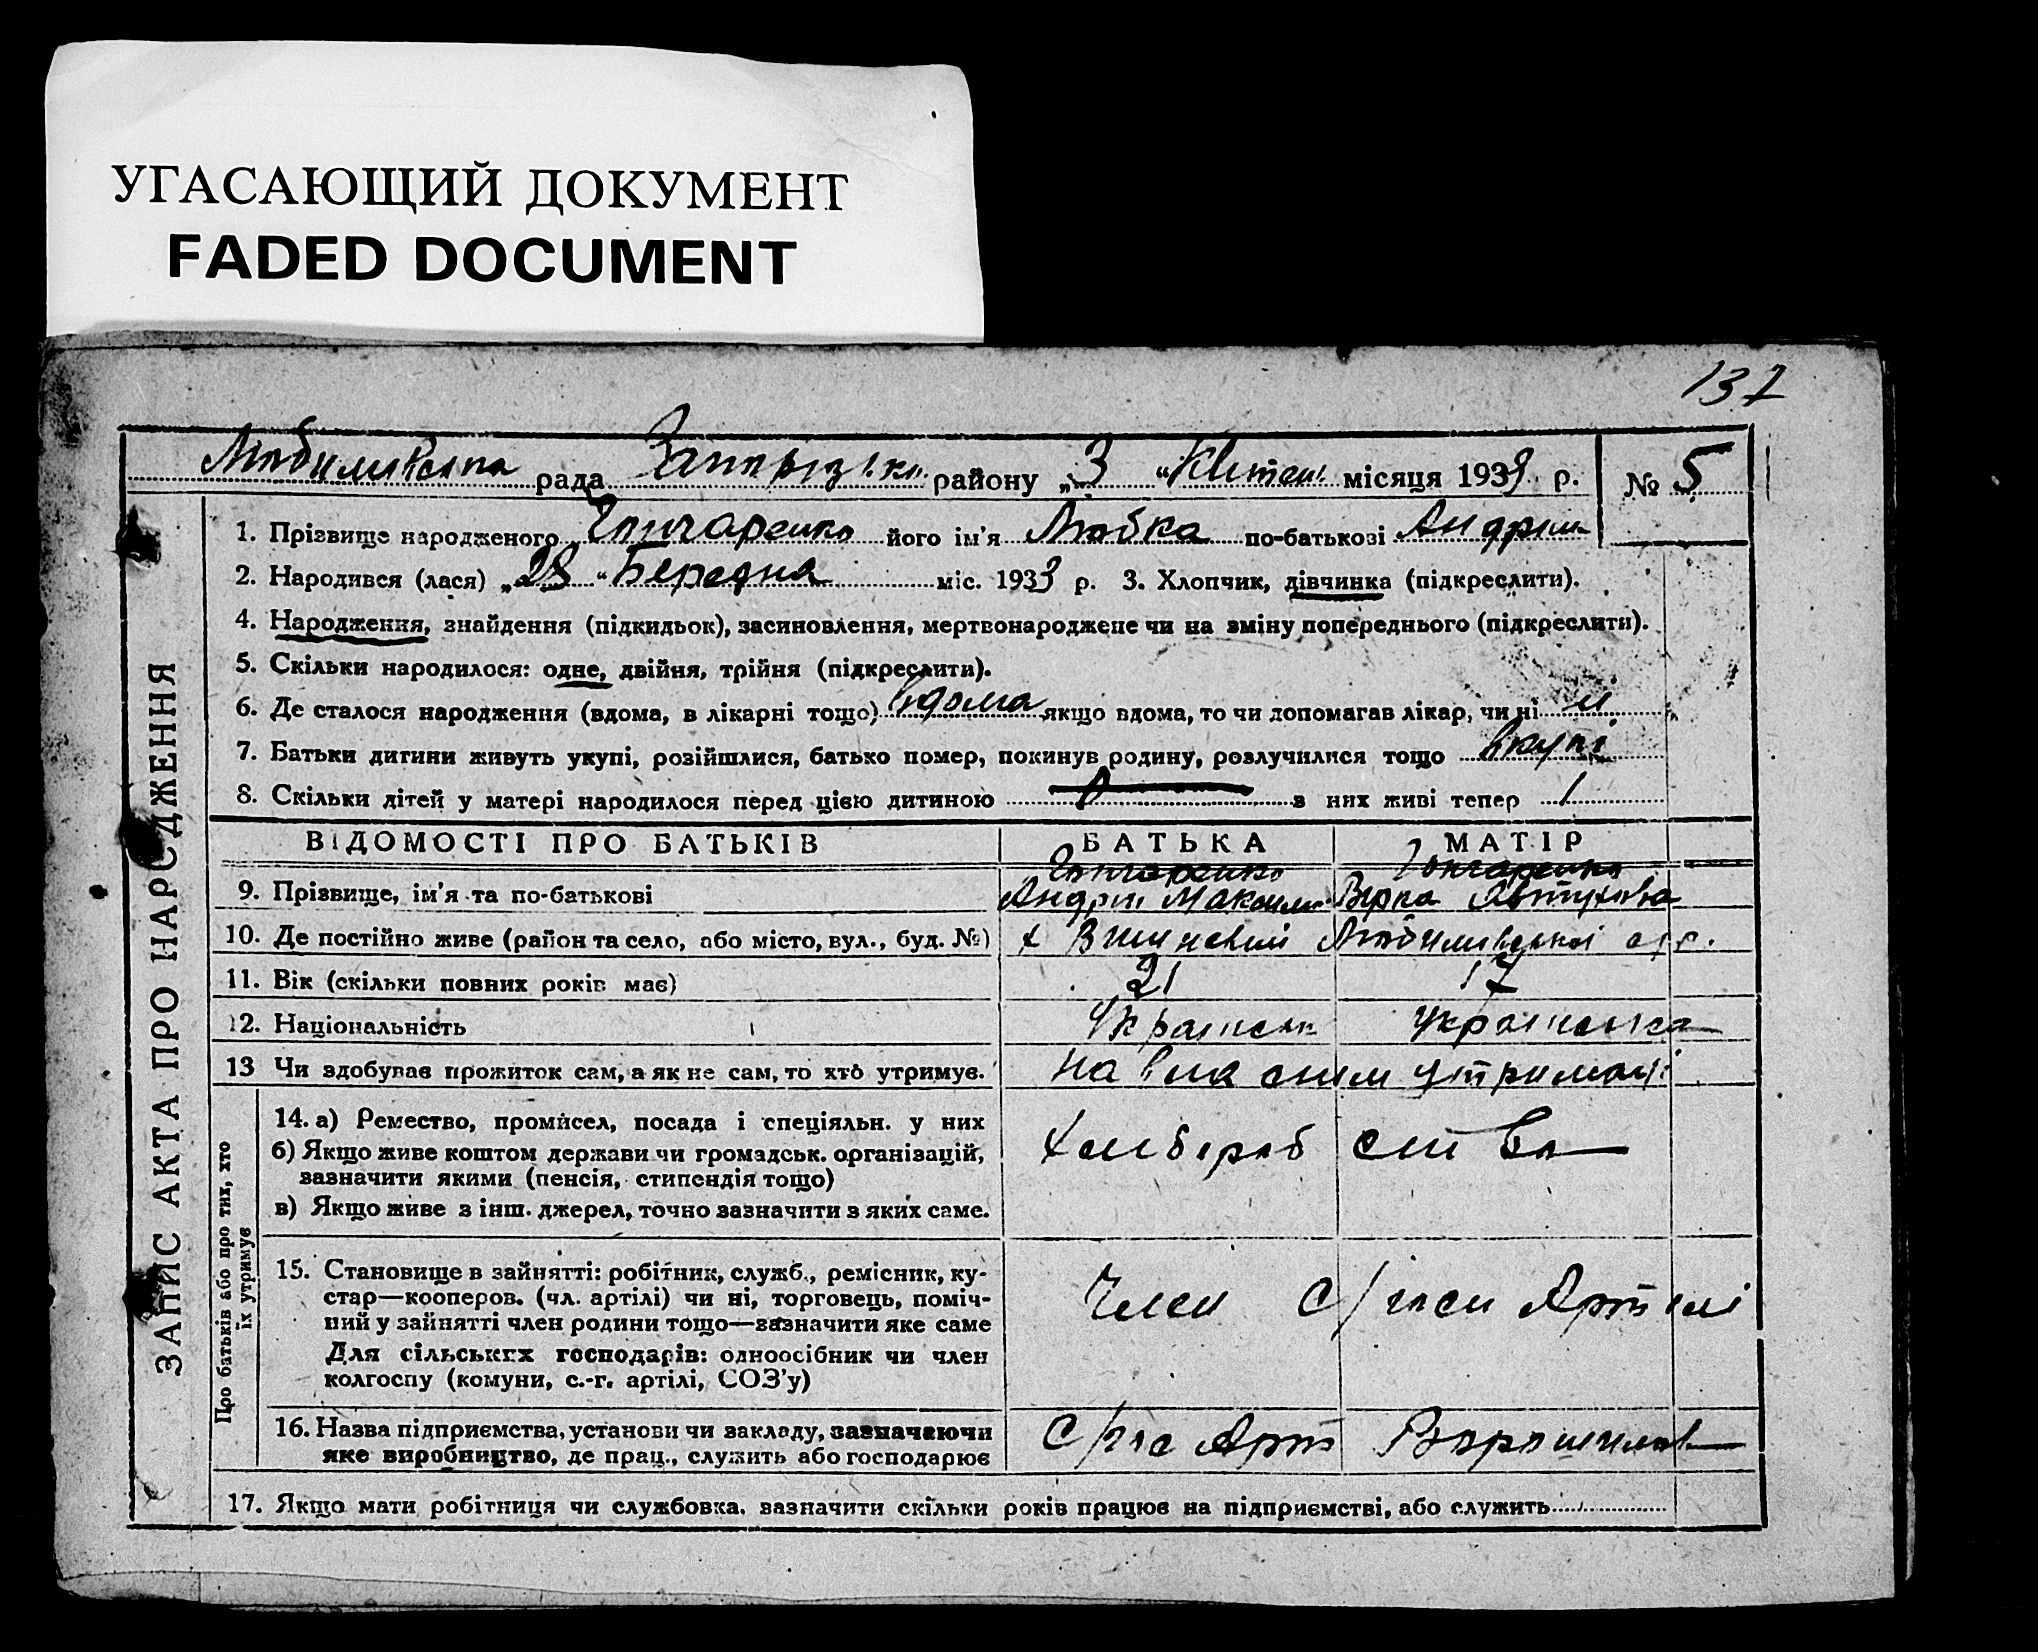 УГАСАЮЩИЙ ДОКУМЕНТ
FADED DOCUMENT
137
рада району „3“ Квітень місяця 1933 р. № 5
ЗАПИС АКТА ПРО НАРОДЖЕННЯ
1. Прізвище народженого Гончаренко його ім'я Любка по-батькові Андрії
2. Народився (лася) „28“ Березня міс. 1933 р. 3. Хлопчик, дівчинка (підкреслити).
4. Народження, знайдення (підкидьок), засиновлення, мертвонароджене чи на зміну попереднього (підкреслити).
5. Скільки народилося: одне, двійня, трійня (підкреслити).
6. Де сталося народження (вдома, в лікарні тощо) вдома якщо вдома, то чи допомагав лікар, чи ні ні
7. Батьки дитини живуть укупі, розійшлися, батько помер, покинув родину, розлучилися тощо вкупі
8. Скільки дітей у матері народилося перед цією дитиною з них живі тепер 1
ВІДОМОСТІ ПРО БАТЬКІВ БАТЬКА МАТІР
Гончаренко Гончаренко
9. Прізвище, ім'я та по-батькові Андрій Максим Вірка
10. Де постійно живе (район та село, або місто, вул., буд. №) х
11. Вік (скільки повних років має) 21 17
12. Національність українськ українська
13 Чи здобуває прожиток сам, а як не сам, то хто утримує. на
Про батьків або про тих, хто
їх утримує
14. а) Ремество, промисел, посада і спеціяльн. у них
б) Якщо живе коштом держави чи громадськ. організацій,
зазначити якими (пенсія, стипендія тощо)
в) Якщо живе з інш. джерел, точно зазначити з яких саме.
15. Становище в зайнятті: робітник, служб., ремісник, ку-
стар—кооперов. (чл. артілі) чи ні, торговець, поміч-
ний у зайнятті член родини тощо—зазначити яке саме
Для сільських господарів: одноосібник чи член
колгоспу (комуни, с.-г. артілі, СОЗ'у)
Член Артілі
16. Назва підприємства, установи чи закладу, зазначаючи
яке виробництво, де прац., служить або господарює
Арт Ворошилов
17. Якщо мати робітниця чи службовка, зазначити скільки років працює на підприємстві, або служить